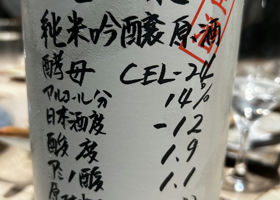 純米吟醸原酒
酵母 CEL-24
アルコール分 14%
日本酒度 -12
酸度 1.9
アミノ酸 1.1